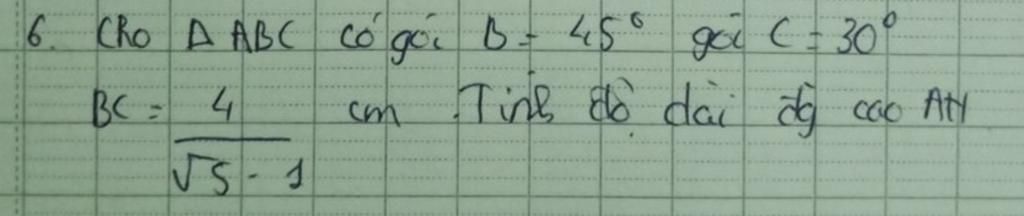 6. Cho Δ ABC có góc B = 45° góc C = 30°
BC = 4/(√5 - 1) cm . Tính độ dài đg cao AH